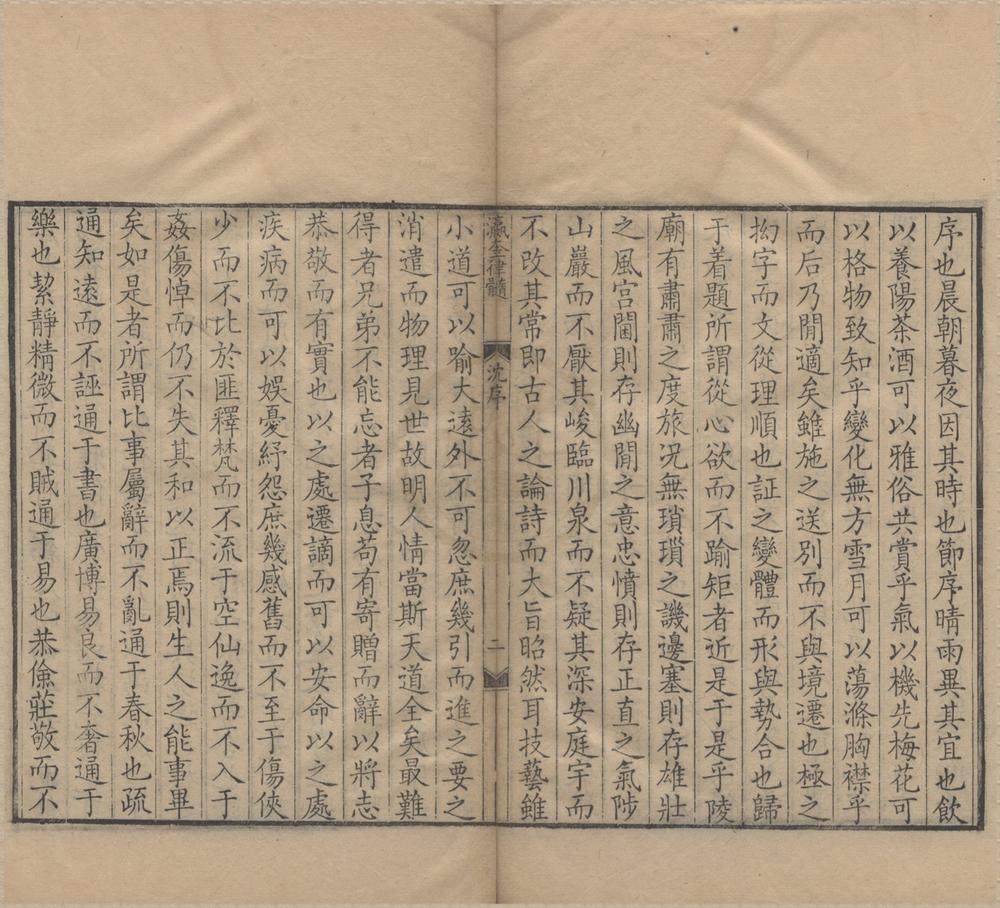 序也晨朝暮夜因其時也節序晴雨異其宜也飲
以養陽茶酒可以雅俗共賞乎氣以機先梅花可
以格物致知乎變化無方雪月可以蕩滌胸襟乎
而后乃閒適矣雖施之送別而不與境遷也極之
拗字而文從理順也証之變體而形與勢合也歸
于着題所謂從心欲而不踰矩者近是于是乎陵
廟有肅肅之度旅況無瑣瑣之譏邊塞則存雄壯
之風宫閫則存幽閒之意忠憤則存正直之氣陟
山巖而不厭其峻臨川泉而不疑其深安庭宇而
不改其常即古人之論詩而大旨昭然耳技藝雖
瀛奎律髓 沈序 二
小道可以喻大遠外不可忽庶幾引而進之要之
消遣而物理見世故明人情當斯天道全矣最難
得者兄弟不能忘者子息苟有寄贈而辭以將志
恭敬而有實也以之處遷謫而可以安命以之處
疾病而可以娛憂紓怨庶幾感舊而不至于傷俠
少而不比於匪釋梵而不流于空仙逸而不入于
姦傷悼而仍不失其和以正焉則生人之能事畢
矣如是者所謂比事屬辭而不亂通于春秋也疏
通知遠而不誣通于書也廣博易良而不奢通于
樂也絜靜精微而不賊通于易也恭儉莊敬而不